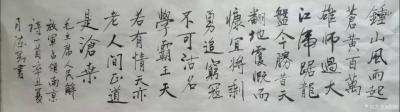 鍾山風雨起
蒼黃百萬
雄師過大
江虎踞龍
盤今勝昔天
翻地覆慨而
慷宜將剩
勇追窮寇
不可沽名
學霸王天
若有情天亦
老人間正道
是滄桑
毛主席人民解
放軍占領南京
詩一首辛丑夏
月